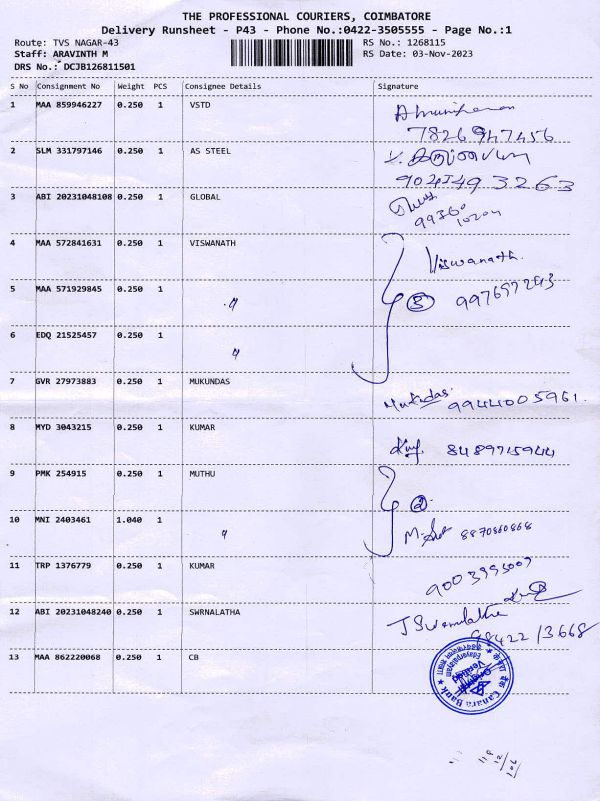 THE PROFESSIONAL COURIERS, COIMBATORE
Delivery Runsheet - P43 - Phone No.:0422-3505555 - Page No.:1
Route: TVS NAGAR-43 RS No.: 1268115
Staff: ARAVINTH M RS Date: 03-Nov-2023
DRS No.: DCJB126811501
S No Consignment No Weight PCS Consignee Details Signature
1 MAA 859946227 0.250 1 VSTD
7826947456
2 SLM 331797146 0.250 1 AS STEEL
9047493263
3 ABI 20231048108 0.250 1 GLOBAL
99360
10204
4 MAA 572841631 0.250 1 VISWANATH Viswanath.
5 MAA 571929845 0.250 1 〃 3 997697293
6 EDQ 21525457 0.250 1 〃
7 GVR 27973883 0.250 1 MUKUNDAS Mukundas. 9944005961.
8 MYD 3043215 0.250 1 KUMAR 8489715944
9 PMK 254915 0.250 1 MUTHU 2
10 MNI 2403461 1.040 1 〃 8870860868
11 TRP 1376779 0.250 1 KUMAR 9003995009
12 ABI 20231048240 0.250 1 SWRNALATHA J Swarnalatha
98422 13668
13 MAA 862220068 0.250 1 CB
Canara Bank